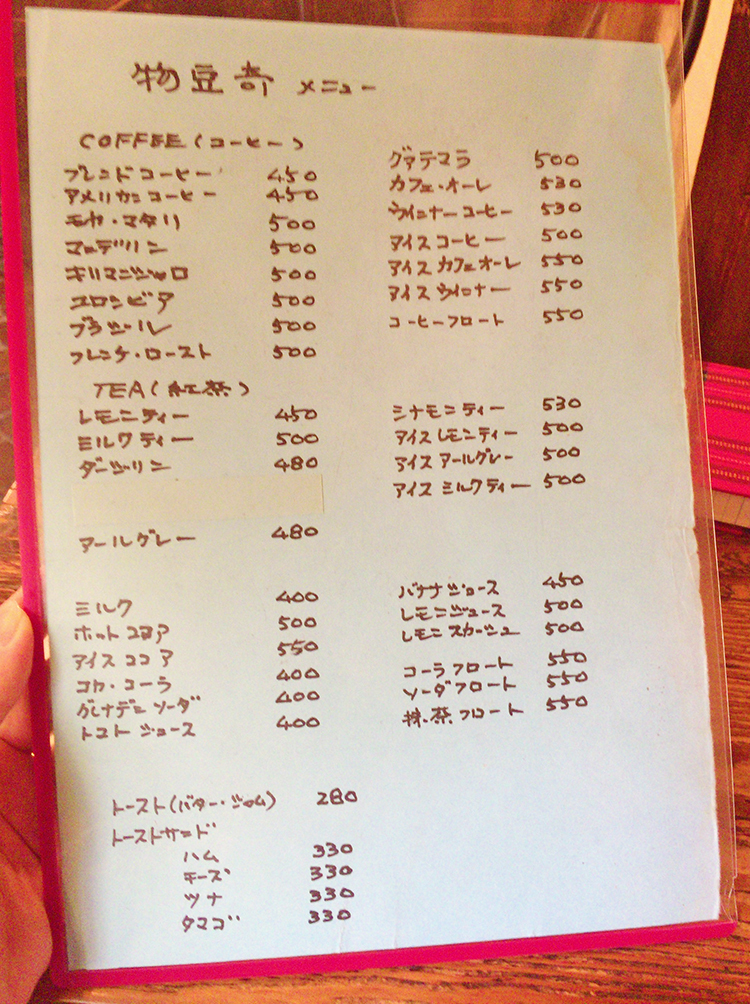 物豆奇 メニュー
COFFEE(コーヒー)
ブレンドコーヒー 450
アメリカンコーヒー 450
モカ・マタリ 500
マンデリン 500
キリマンジャロ 500
コロンビア 500
ブラジル 500
フレンチ・ロースト 500
グァテマラ 500
カフェ・オーレ 530
ウインナーコーヒー 530
アイスコーヒー 500
アイスカフェオーレ 550
アイスウインナー 550
コーヒーフロート 550
TEA(紅茶)
レモンティー 450
ミルクティー 500
ダージリン 480
アールグレー 480
シナモンティー 530
アイスレモンティー 500
アイスアールグレー 500
アイスミルクティー 500
ミルク 400
ホットココア 500
アイスココア 550
コカ・コーラ 400
グレナデンソーダ 400
トマトジュース 400
バナナジュース 450
レモンジュース 500
レモンスカッシュ 500
コーラフロート 550
ソーダフロート 550
抹茶フロート 550
トースト(バター・ジャム) 280
トーストサンド
ハム 330
チーズ 330
ツナ 330
タマゴ 330